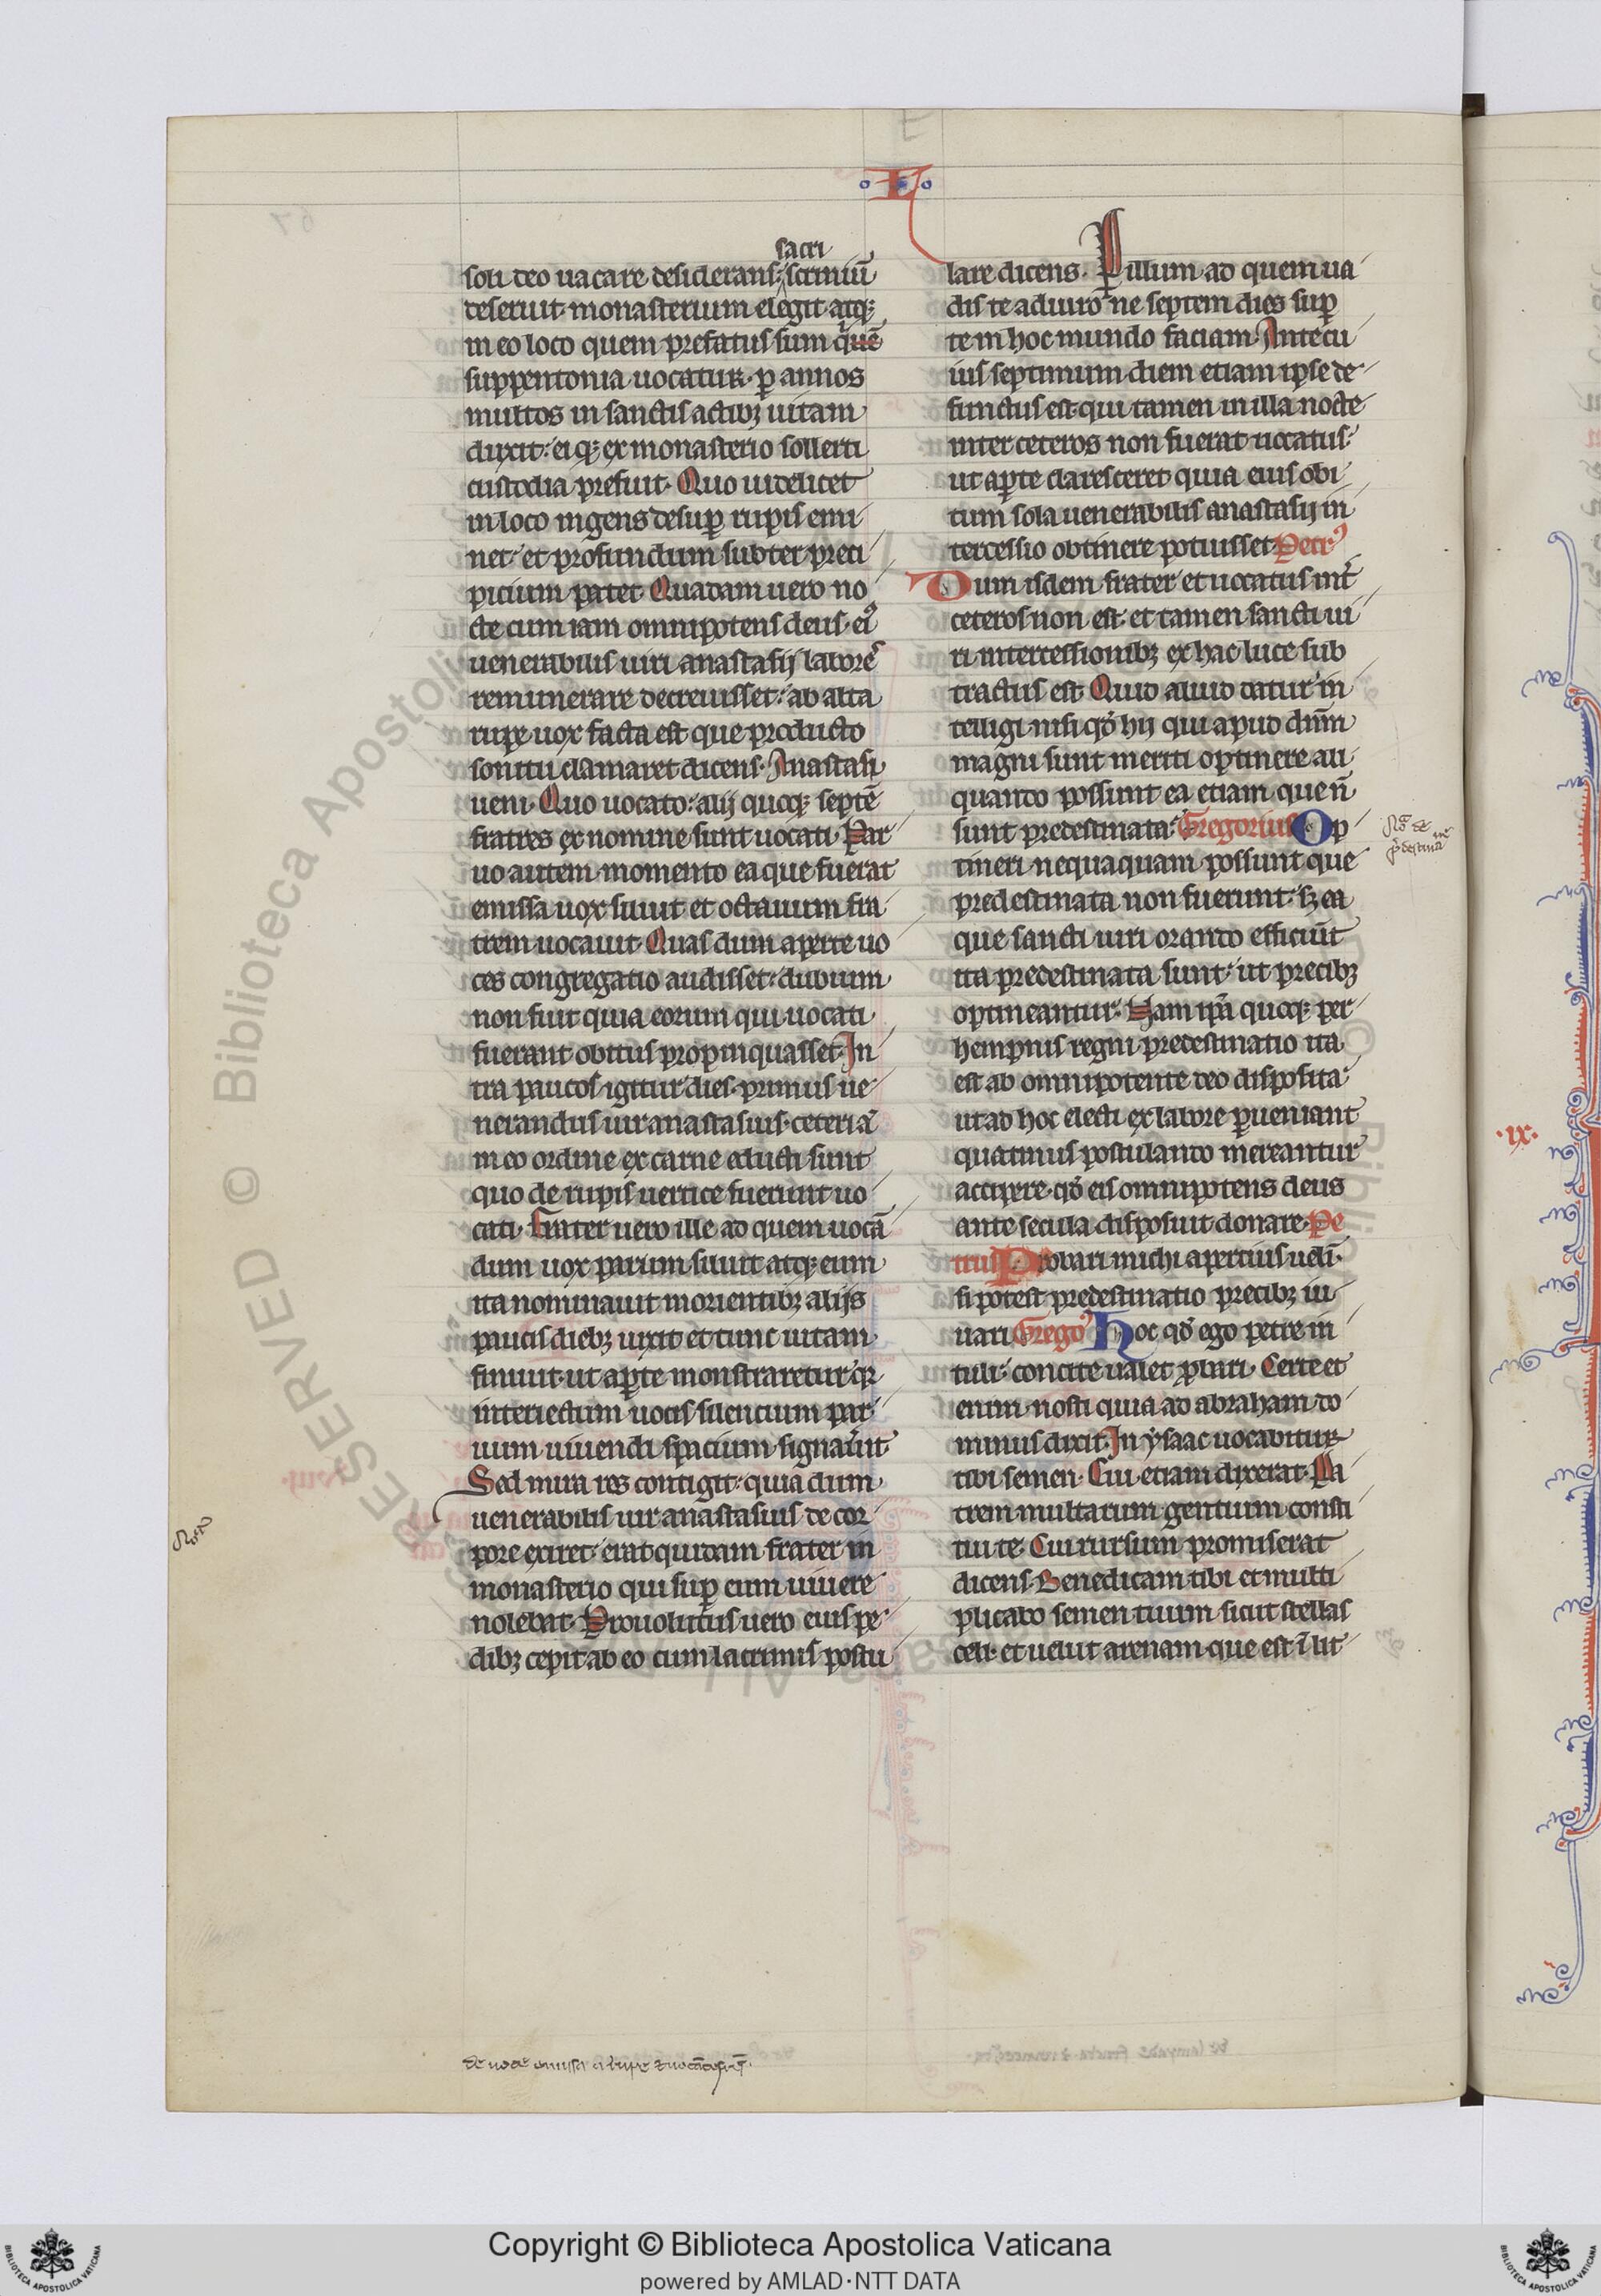 L
sacri
soli deo uacare desiderans scriniū
deseruit monasterium elegit atq;
in eo loco quem prefatus sum que
suppentonia uocatur. ꝑ annos
multos in sanctis actibꝫ uitam
duxit: eiq; ex monasterio sollerti
custodia prefuit. Quo uidelicet
in loco ingens desuꝑ rupis emi
net. et profundum subter preci
picium patet. Quadam uero no
cte cum iam omnipotens deus ei⁹
uenerabilis uiri anastasij labore͛s
remunerare decreuisset: ab alta
rupe uox facta est que producto
sonitu clamaret dicens. Anastasi
ueni. Quo uocato: alij quoq; septē
fratres ex nomine sunt uocati. Par
uo autem momento ea que fuerat
emissa uox siluit et octauum fra
trem uocauit. Quas dum aperte uo
ces congregatio audisset: dubium
non fuit quia eorum qui uocati
fuerant obitus propinquasset. In
tra paucos igitur dies primus ue
nerandus uir anastasius. ceteri aū
in eo ordine ex carne educti sunt
quo de rupis uertice fuerunt uo
cati. Frater uero ille ad quem uocā
dum uox parum siluit atq; eum
ita nominauit morientibꝫ alijs
paucis diebꝫ uixit et tunc uitam
finiuit. ut aꝑte monstraretur qꝛ
interiectum uocis silencium par
uum uiuendi spacium signauit
Sed mira res contigit: quia dum
uenerabilis uir anastasius de cor
pore exiret. erat quidam frater in
monasterio qui suꝑ eum uiuere
nolebat. Prouolutus uero eius pe
dibꝫ cepit ab eo cum lacrimis postu
lare dicens. Ꝑ illum ad quem ua
dis te adiuro ne septem dies suꝑ
te in hoc mundo faciam. Ante cu
ius septimum diem etiam ipse de
functus est. qui tamen in illa nocte
inter ceteros non fuerat uocatus:
ut aꝑte claresceret quia eius obi
tum sola uenerabilis anastasij in
tercessio obtinere potuisset. Petr⁹
Dum isdem frater et uocatus int̄
ceteros non est. et tamen sancti ui
ri intercessionibꝫ ex hac luce sub
tractus est. Quid aliud datur in
telligi. nisi qđ hij qui apud dn̄m
magni sunt meriti optinere ali
quando possunt ea etiam que n̄
sunt predestinata. Gregorius Op
tineri nequaquam possunt que
predestinata non fuerunt. sꝫ ea
que sancti uiri orando efficiūt
ita predestinata sunt. ut precibꝫ
optineantur. Nam ip̄a quoq; per
hempnis regni predestinatio ita
est ab omnipotente deo disposita:
ut ad hoc electi ex labore ꝑueniant
quatinus postulando mereantur
accipere. qđ eis omnipotens deus
ante secula disposuit donare. Pe
trus Probari michi apercius uelī.
si potest predestinatio precibꝫ iu
uari Grego⁹ Hoc qđ ego petre in
tuli: concite ualet ꝓbari. Certe et
enim nosti quia ad abraham do
minus dixit. In ysaac uocabitur
tibi semen. Cui etiam dixerat. Pa
trem multarum gentium consti
tui te. Cui rursum promiserat
dicens. Benedicam tibi et multi
plicabo semen tuum sicut stellas
celi. et uelut arenam que est ī lit
.ix.